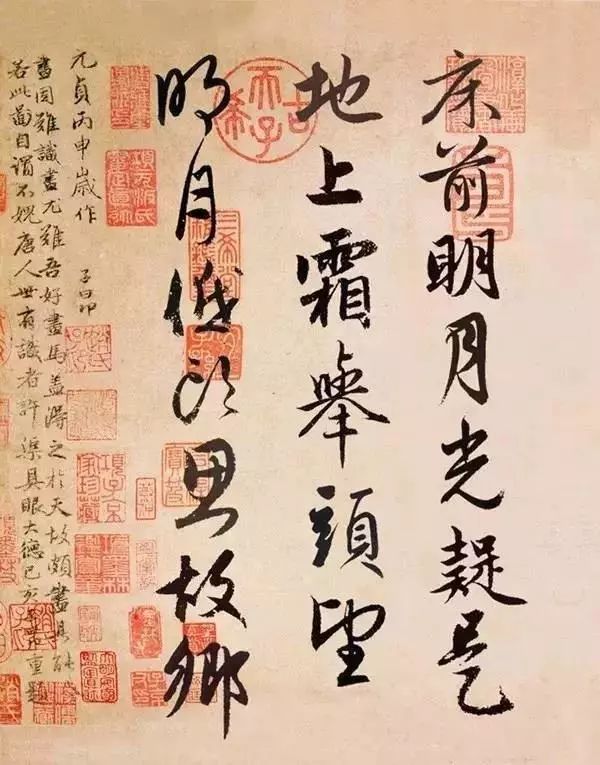 床前明月光疑是
地上霜舉頭望
明月低頭思故鄉
古希天子
元貞丙申歲作
子昂
畫固難識畫尤難吾好畫馬蓋得之於天故頗盡其能
若此圖自謂不愧唐人世有識者許渠具眼大德己亥子昂重題
項子京家珍藏